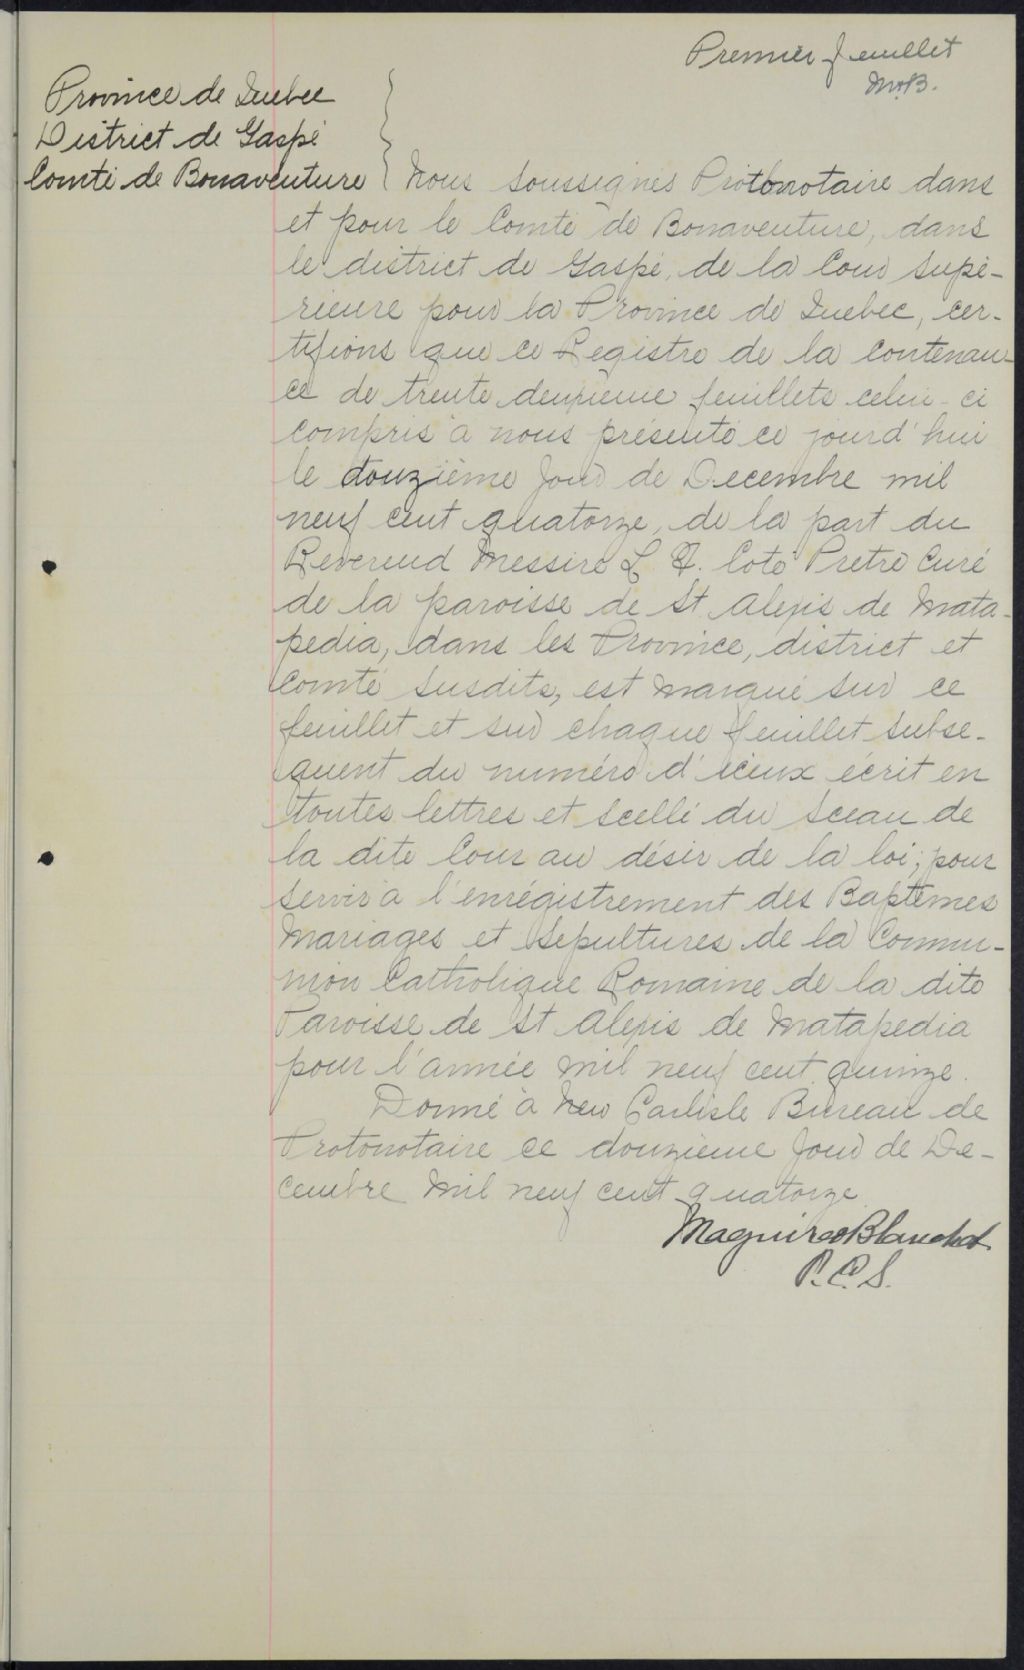 Premier feuillet
M&B.
Province de Quebec
District de Gaspé
Comté de Bonaventure
Nous soussignés Protonotaire dans
et pour le Comté de Bonaventure, dans
le district de Gaspé, de la Cour Supé-
rieure pour la Province de Quebec, cer-
tifions que ce Registre de la contenan-
ce de trente deuxieme feuillets celui-ci
compris à nous présenté ce jourd'hui
le douzième jour de Decembre mil
neuf cent quatorze, de la part du
Reverend Messire L. A. Coté Pretre Curé
de la paroisse de St Alexis de Mata-
pedia, dans les Province, district et
Comté susdits, est marqué sur ce
feuillet et sur chaque feuillet subse-
quent du numéro d'iceux écrit en
toutes lettres et scellé du sceau de
la dite Cour au désir de la loi; pour
servir à l'enrégistrement des Baptêmes
Mariages et Sepultures de la Commu-
nion Catholique Romaine de la dite
Paroisse de St Alexis de Matapedia
pour l'année mil neuf cent quinze.
Donné à New Carlisle Bureau de
Protonotaire ce douzieme jour de De-
cembre mil neuf cent quatorze
Maguire & Blanchet
P.C.S.